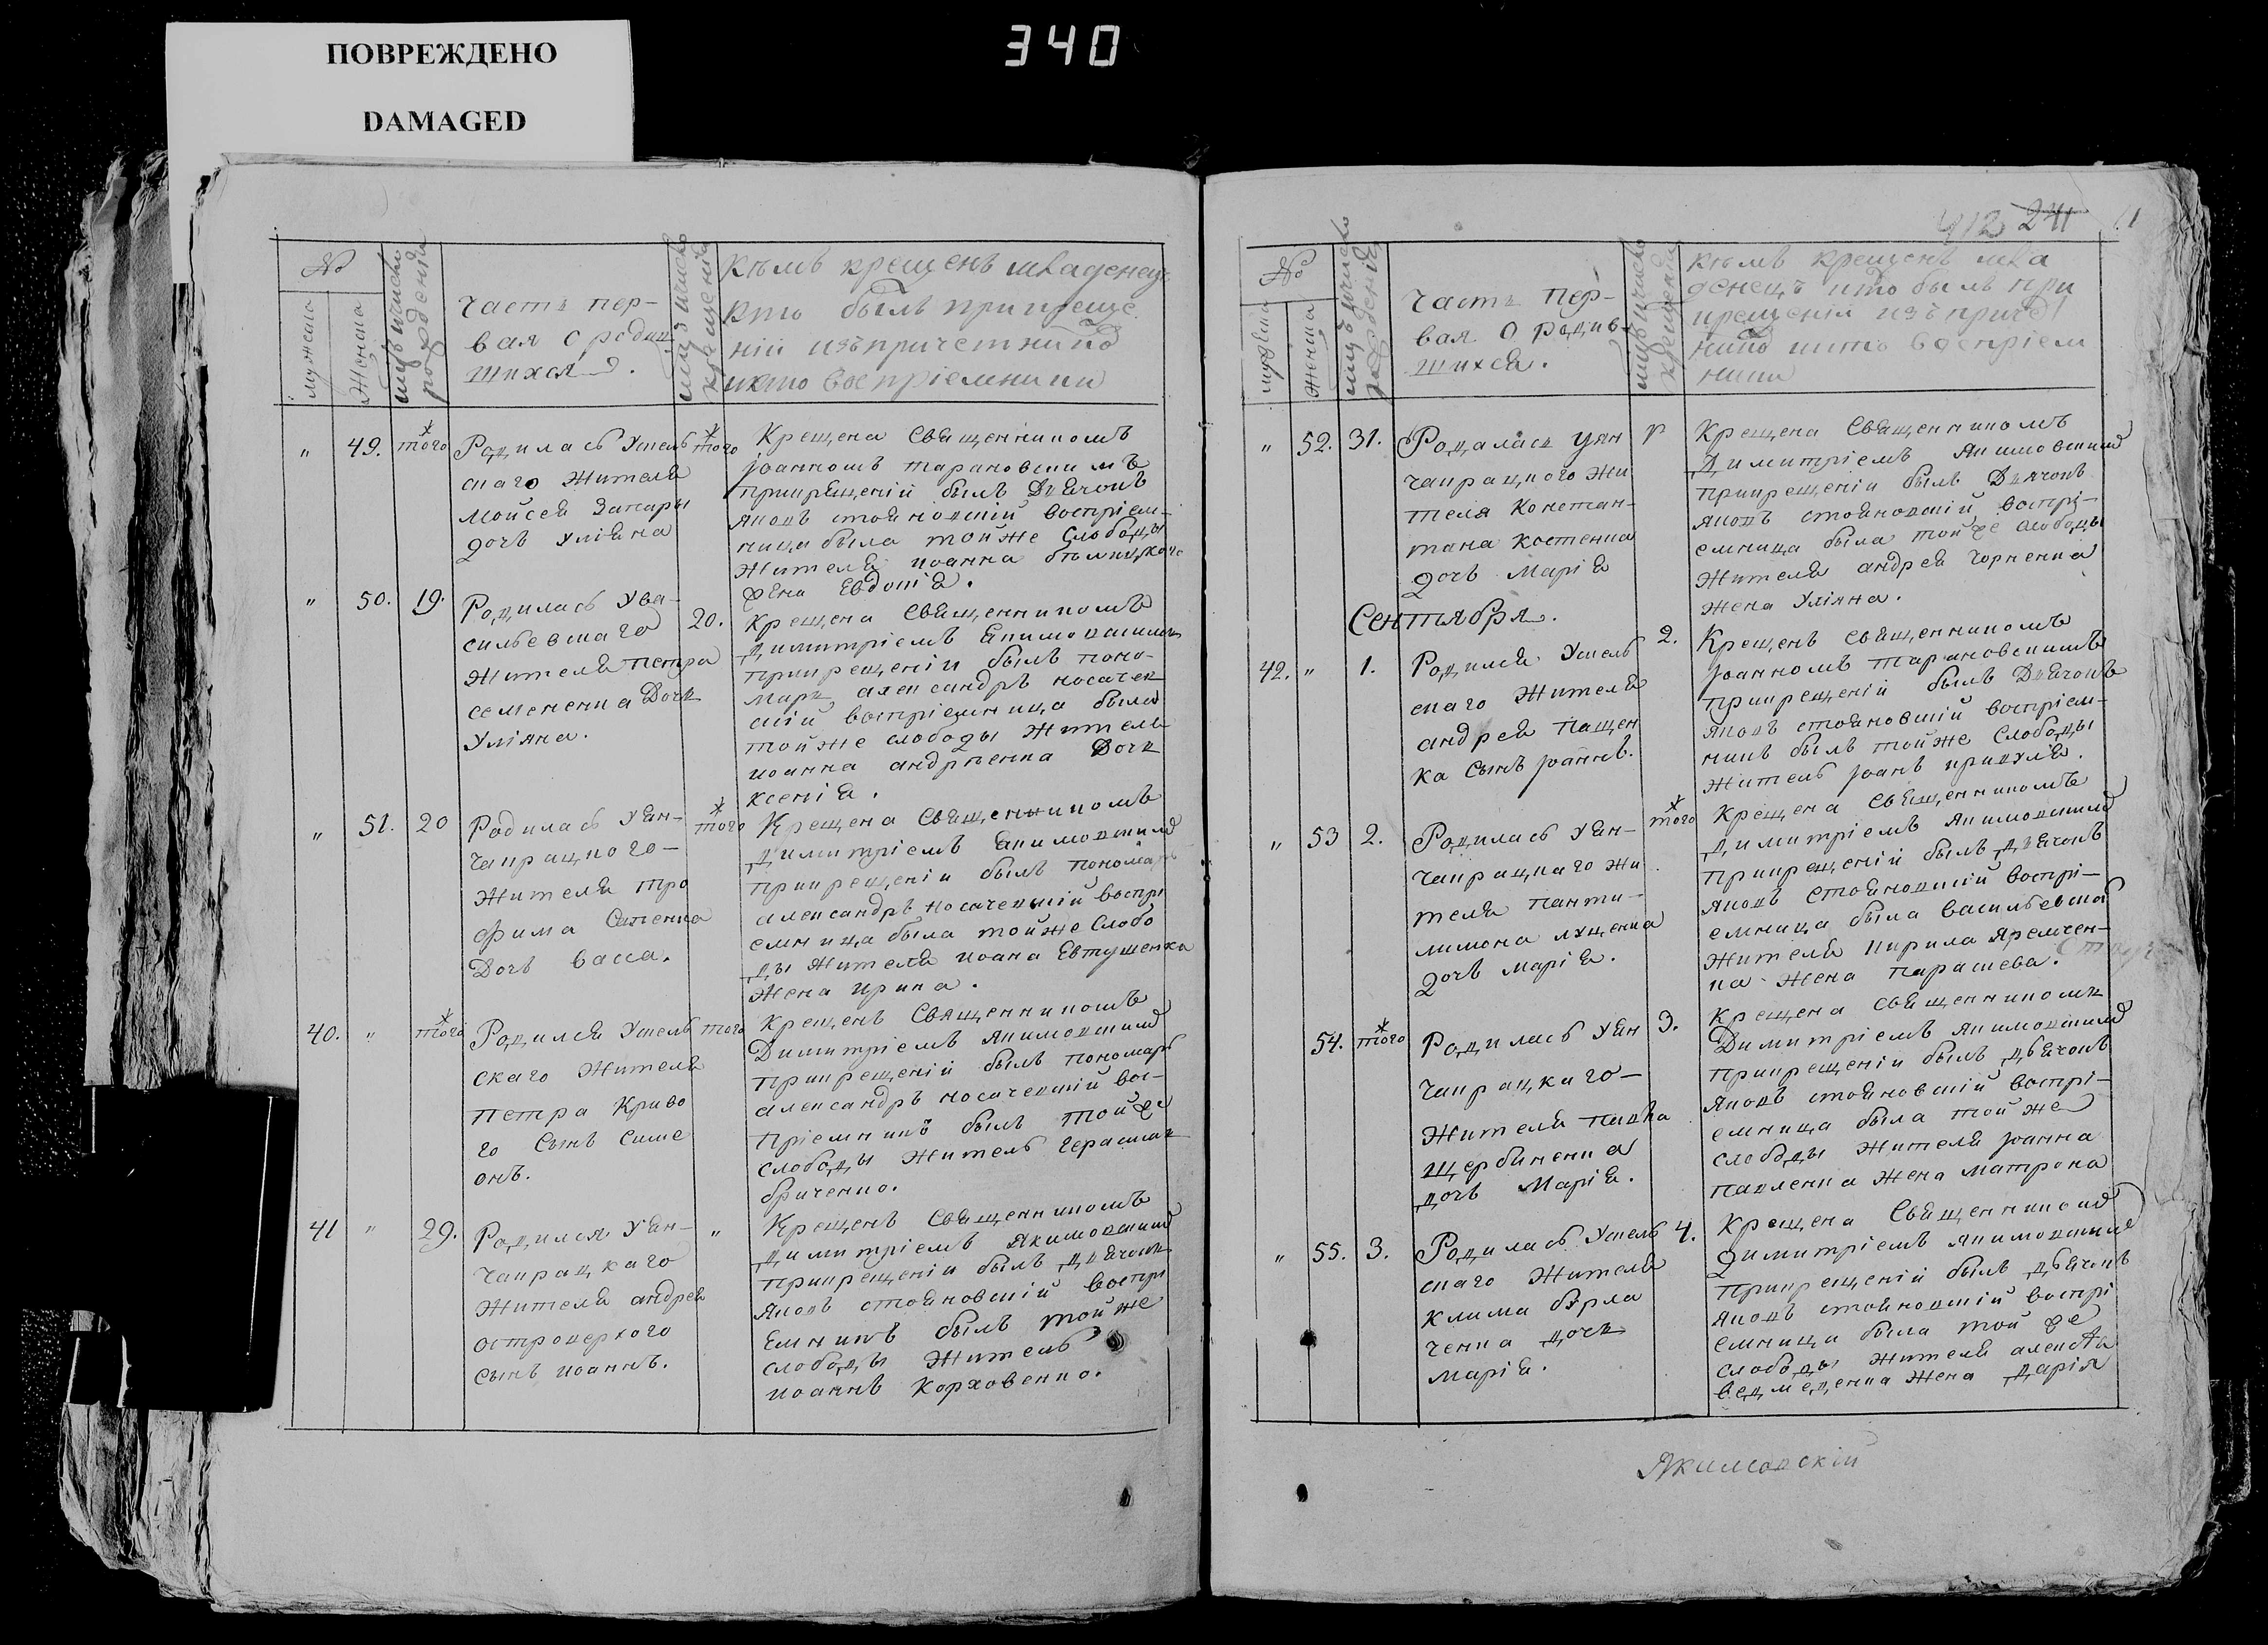 ПОВРЕЖДЕНО
DAMAGED
340
№
мужеска
женска
часть пер-
вая о родив
шихся
Кѣмъ крещенъ младенецъ
кто былъ при креще
ніи изъ причетников
и кто воспріемники
" 49. того
Родилась Ускль
скаго жителя
Мойсея
дочь Уліяна
того
Крещена Священникомъ
Іоанномъ Тарановскимъ
при крещеніи былъ Дьячокъ
Яковъ Стояновскій воспріем-
ница была той же Слободы
жителя Иоанна
жена Евдокія.
" 50. 19.
Родилась Ува-
сильевскаго
жителя Петра
Семененка Дочь
Уліяна.
20.
Крещена Священникомъ
Димитріемъ Якимовскимъ
при крещеніи былъ поно-
марь Александръ Носачев
скій воспріемница была
той же слободы жителя
иоанна андрѣенка Дочь
Ксенія.
" 51. 20
Родилась Уян-
чакрацкого-
жителя Тро
фима
Дочь Васса.
того
Крещена Священникомъ
Димитріемъ Якимовским
при крещеніи былъ пономарь
Александръ Носачевскій воспрі
емница была той же Слобо
ды жителя Иоана Евтушенка
жена Ирина.
40. " того
Родился Ускль
скаго жителя
Петра Криво
го Сынъ Симе
онъ.
того
Крещенъ Священникомъ
Димитріемъ Якимовским
при крещеніи былъ пономарь
Александръ Носачевскій вос-
пріемникъ былъ той же
слободы житель Герасим
Бриченко.
41 " 29.
Родился Уян-
чакрацкаго
жителя андрея
островерхого
сынъ иоаннъ.
"
Крещенъ Священникомъ
Димитріемъ Якимовским
при крещеніи былъ Дьячокъ
Яковъ Стояновскій воспрі
емникъ былъ той же
слободы житель
иоаннъ Корховенко.
412 241
№
мужеска
женска
часть пер-
вая о родив-
шихся.
Кѣмъ крещенъ мла
денецъ и кто былъ при
крещеніи изъ причет
никовъ и кто воспріем
ники
" 52. 31.
Родалась Уян
чакрацкого жи
теля Констан-
тина Костенка
дочь Марія
Крещена Священникомъ
Димитріемъ Якимовским
при крещеніи былъ Дьячокъ
Яковъ Стояновскій воспрі-
емница была той же слободы
жителя андрея Чорненка
жена Уліяна.
Сентября.
42. " 1.
Родился Ускль
скаго жителя
андрея Пащен
ка Сынъ Іоаннъ.
2.
Крещенъ Священникомъ
Іоанномъ Тарановскимъ
при крещеніи былъ Дьячокъ
Яковъ Стояновскій воспріем-
никъ былъ той же Слободы
житель Іоанъ
" 53 2.
Родилась Уян-
чакрацкаго жи
теля Панти-
лимона Луценка
дочь Марія.
того
Крещена Священникомъ
Димитріемъ Якимовским
при крещеніи былъ Дьячокъ
Яковъ Стояновскій воспрі-
емница была васильевскаго
жителя Кирила Яремчен-
ка жена Параскева.
54. того
Родилась Уян
чакрацкаго-
жителя Павла
Щербиненка
дочь Марія.
3.
Крещена Священникомъ
Димитріемъ Якимовским
при крещеніи былъ Дьячокъ
Яковъ Стояновскій воспрі-
емница была той же
слободы жителя Іоанна
Павленка жена Матрона
" 55. 3.
Родилась Ускль
скаго жителя
Клима Бурла
ченка дочь
Марія.
4.
Крещена Священником
Димитріемъ Якимовским
при крещеніи былъ Дьячокъ
Яковъ Стояновскій воспрі
емница была той же
слободы жителя алексѣя
ведмеденка жена Дарія
Якимовскій